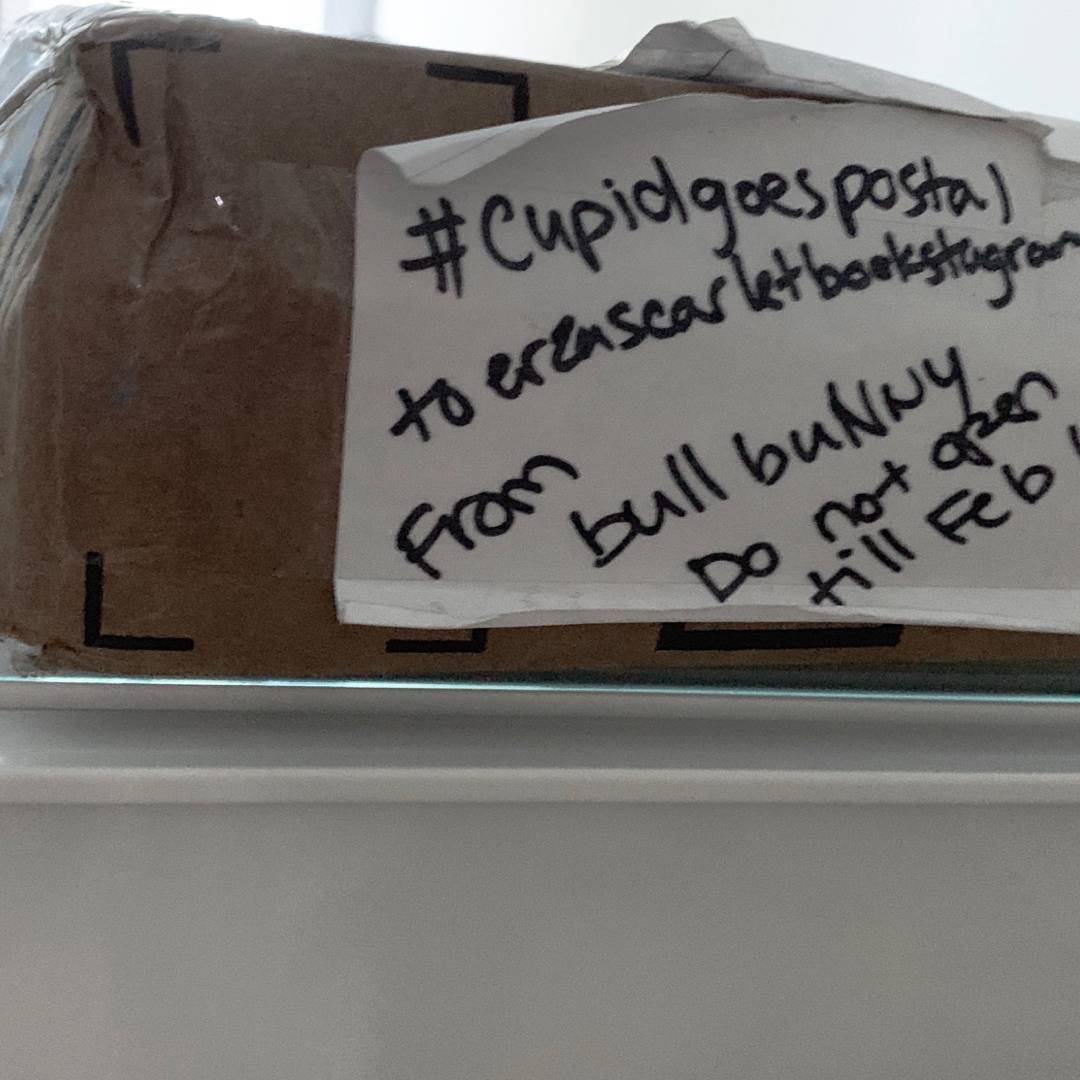 #Cupidgoespostal
to erzascarletbookstagram
From bull buNNy
Do not open
till Feb